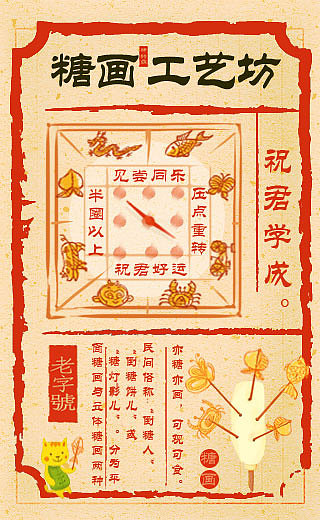 糖画工艺坊
祝君学成。
见尝同乐
压点重转
半圈以上
祝君好运
老字號
亦糖亦画，可观可食。
民间俗称：“倒糖人”、
“倒糖饼儿”、或
“糖灯影儿”。分为平
面糖画与立体糖画两种
糖画